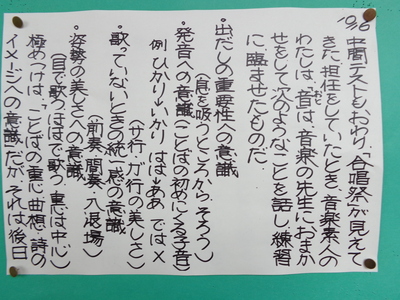 10/6
中間テストもおわり、「合唱祭」が見えて
きた。担任をしていたとき、音楽素人の
わたしは、「音は、音楽の先生におまか
せをして次のようなことを話し、練習
に臨ませたものだ。
・出だしの重要性への意識
(息を吸うところから、そろう)
・発音への意識(ことばの初めにくる子音)
例 ひかり→いかり はは→ああ では×
(サ行、ガ行の美しさ)
・歌っていないときの統一感の意識
(前奏、間奏、入退場)
・姿勢の美しさへの意識
(目で歌う、ほほで歌う、重心は中心)
極めつけは、「ことばの重心、曲想、詩の
イメージへの意識だが、それは後日